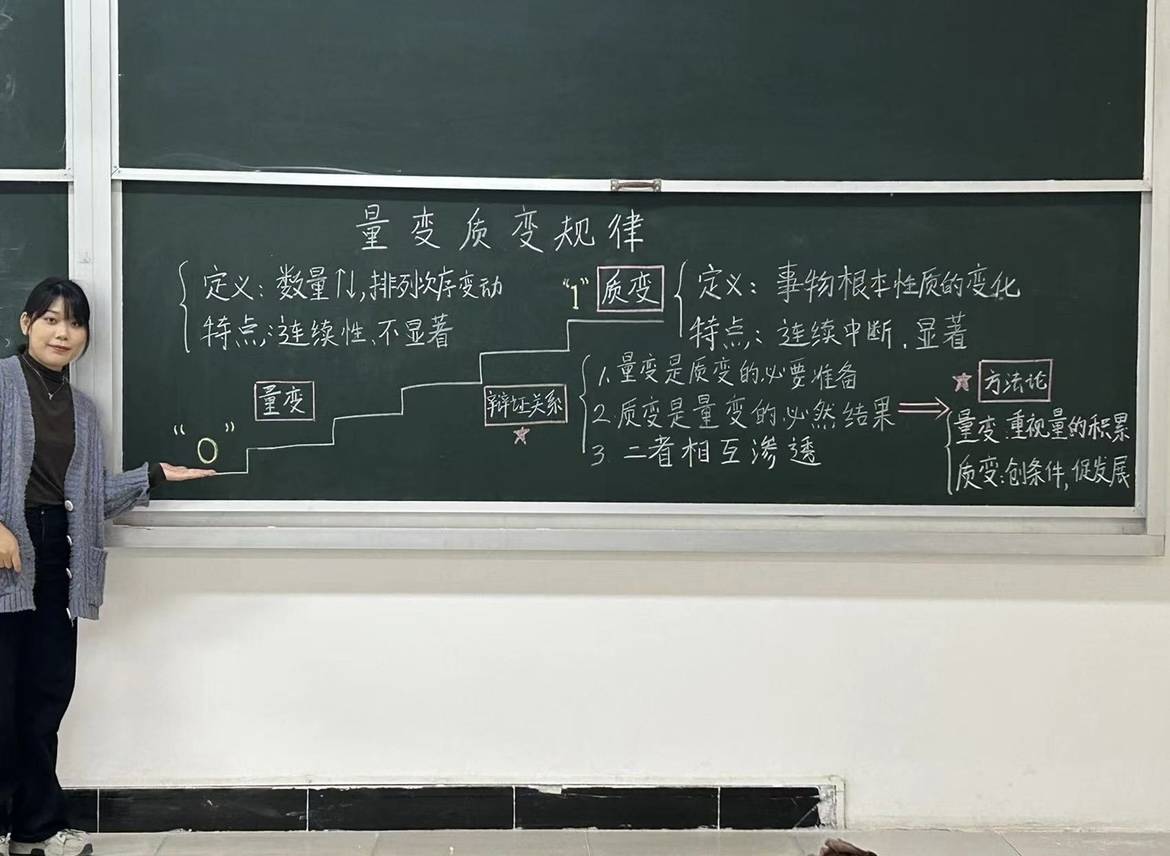 量变质变规律
定义：数量↑↓，排列次序变动
特点：连续性、不显著
量变
“0”
“1”
质变
定义：事物根本性质的变化
特点：连续中断、显著
辩证关系
1.量变是质变的必要准备
2.质变是量变的必然结果
3.二者相互渗透
方法论
量变：重视量的积累
质变：创条件，促发展